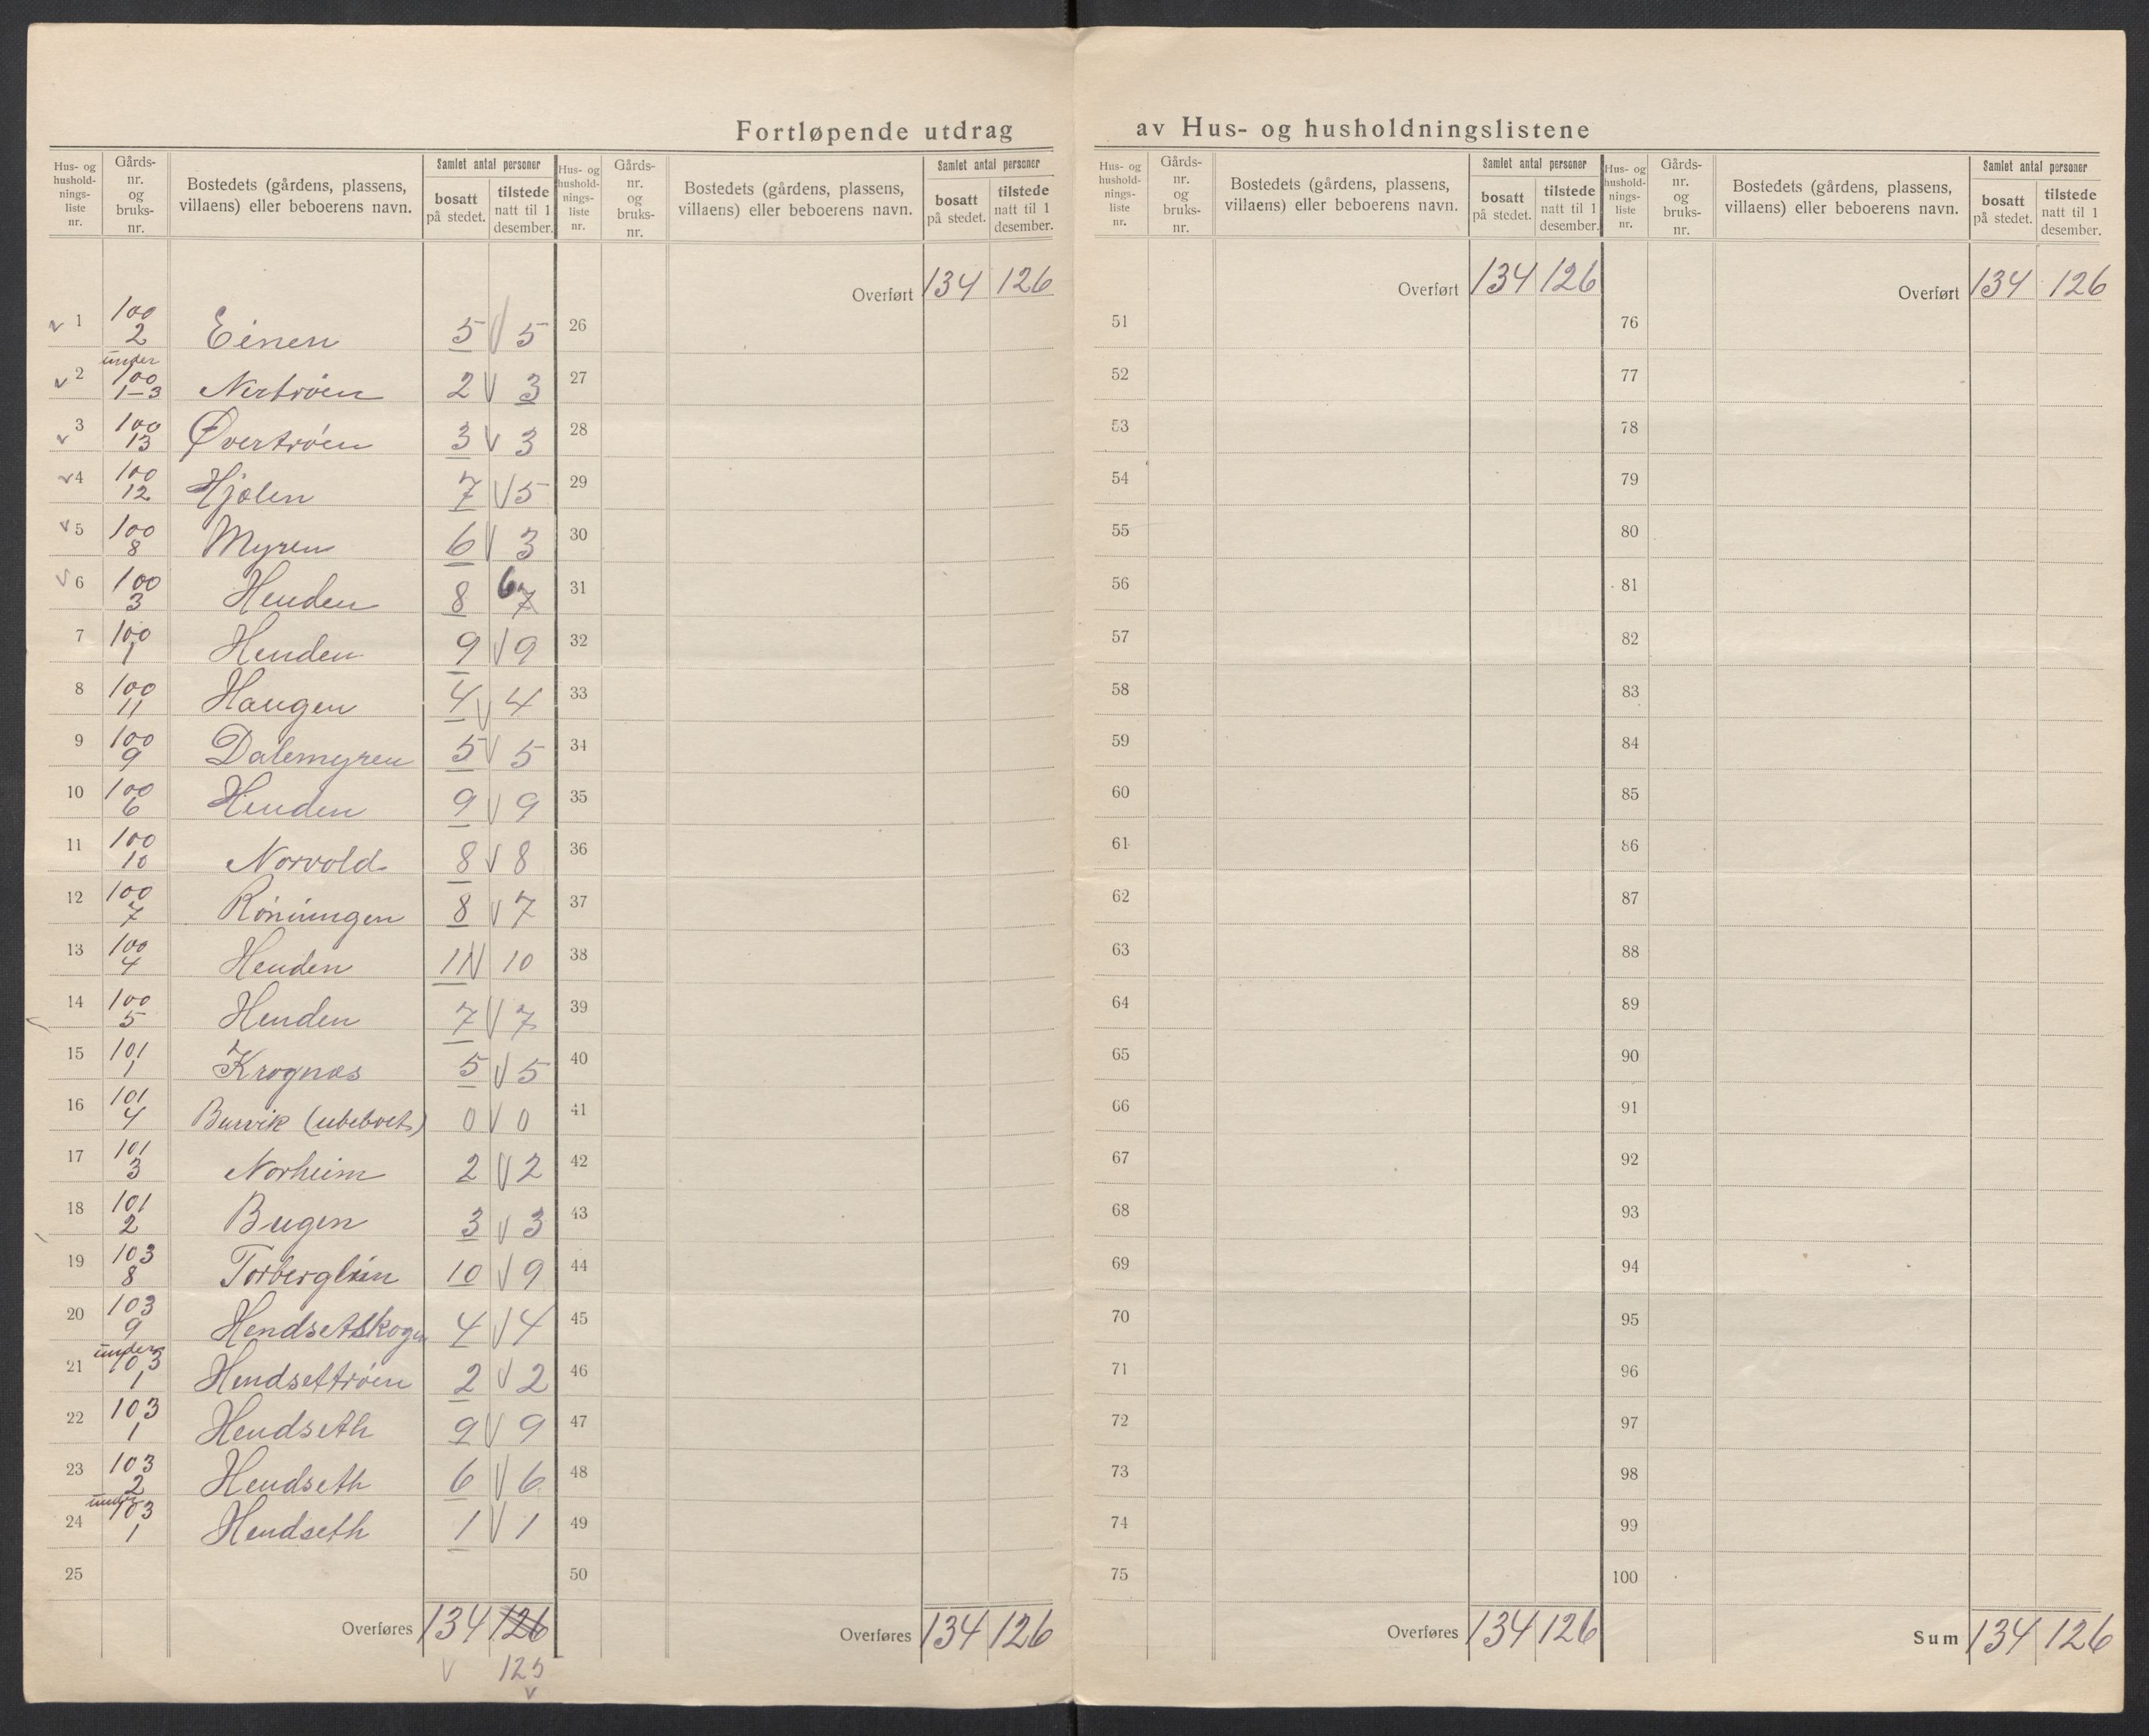 Fortløpende utdrag av Hus- og husholdningslistene
Hus- og hushold-nings-liste nr. Gårds-nr. og bruks-nr. Bostedets (gårdens, plassens, villaens) eller beboerens navn. Samlet antal personer bosatt på stedet. tilstede natt til 1 desember.
Hus- og hushold-nings-liste nr. Gårds-nr. og bruks-nr. Bostedets (gårdens, plassens, villaens) eller beboerens navn. Samlet antal personer bosatt på stedet. tilstede natt til 1 desember.
Hus- og hushold-nings-liste nr. Gårds-nr. og bruks-nr. Bostedets (gårdens, plassens, villaens) eller beboerens navn. Samlet antal personer bosatt på stedet. tilstede natt til 1 desember.
Hus- og hushold-nings-liste nr. Gårds-nr. og bruks-nr. Bostedets (gårdens, plassens, villaens) eller beboerens navn. Samlet antal personer bosatt på stedet. tilstede natt til 1 desember.
1 100 2 Einen 5 5
2 under 100 1-3 Nertrøen 2 3
3 100 13 Øvertrøen 3 3
4 100 12 Hjølen 7 5
5 100 8 Myren 6 3
6 100 3 Henden 8 6 7
7 100 1 Henden 9 9
8 100 11 Haugen 4 4
9 100 9 Dalemyren 5 5
10 100 6 Henden 9 9
11 100 10 Norvold 8 8
12 100 7 Rønningen 8 7
13 100 4 Henden 11 10
14 100 5 Henden 7 7
15 101 1 Krognæs 5 5
16 101 4 (ubeboet) 0 0
17 101 3 Norheim 2 2
18 101 2 Bugen 3 3
19 103 8 10 9
20 103 9 Hendsetskogen 4 4
21 under 103 1 Hendsettrøen 2 2
22 103 1 Hendseth 9 9
23 103 2 Hendseth 6 6
24 under 103 1 Hendseth 1 1
25
Overføres 134 126
125
Overført 134 126
26
27
28
29
30
31
32
33
34
35
36
37
38
39
40
41
42
43
44
45
46
47
48
49
50
Overføres 134 126
Overført 134 126
51
52
53
54
55
56
57
58
59
60
61
62
63
64
65
66
67
68
69
70
71
72
73
74
75
Overføres 134 126
Overført 134 126
76
77
78
79
80
81
82
83
84
85
86
87
88
89
90
91
92
93
94
95
96
97
98
99
100
Sum 134 126